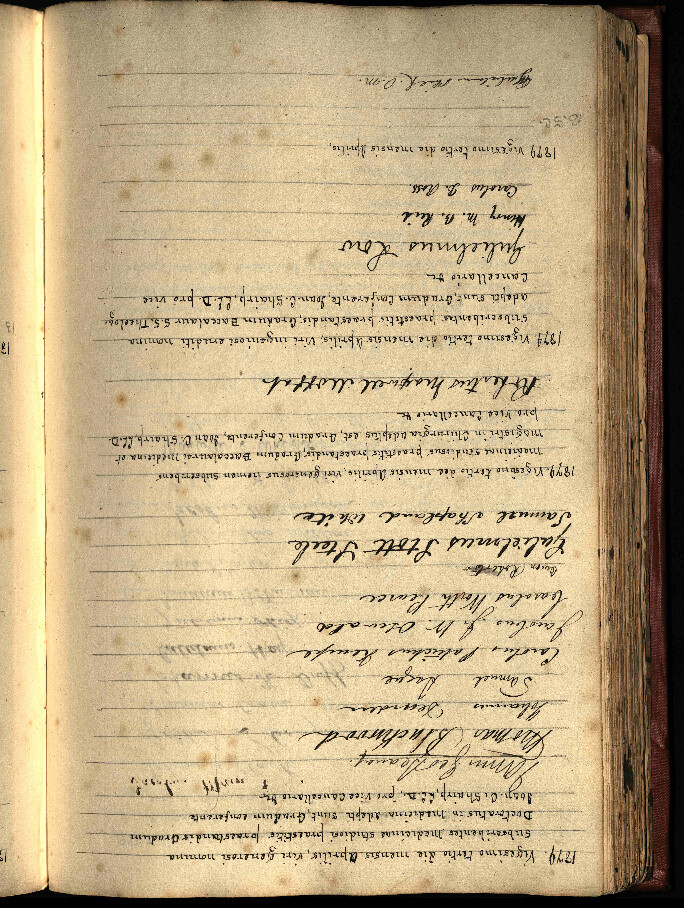 1879 Vigesimo tertio die mensis Aprilis, viri generosi nomina
Subscribentes Medicinae studiosi praestitis praestandis Gradum
Doctoratus in Medicina Adepti sunt, Gradum conferente
Joan. C. Shairp, LL.D., pro Vice Cancellario &c
Thomas Blackwood
Johannes Dearden
Samuel Hague
Carolus Patricius Kempe
Jacobus J. W. Oswald
Carolus Worth Pearce
Owen Roberts
Gulielmus Stott Steele
Samuel Shapland White
1879 Vigesimo tertio die mensis Aprilis, viri generosus nomen subscribens
medicinae studiosus, praestitis praestandis, Gradum Baccalaurei Medicinae et
Magistri in Chirurgia adeptus est, Gradum Conferente, Joan C. Shairp, LL.D.
pro Vice Cancellario &c
Robertus Maxwell Moffat
1879 Vigesimo tertio die mensis Aprilis, Viri ingenui eruditi nomina
Subscribentes, praestitis praestandis, Gradum Baccalaur S.S. Theologiae
adepti sunt, Gradum Conferente, Joan. C. Shairp, LL.D. pro vice
Cancellario &c
Gulielmus Low
Henry M. B. Reid
Carolus D. Ross
1879 Vigesimo tertio die mensis Aprilis,
B.Sc.
Gulielmus